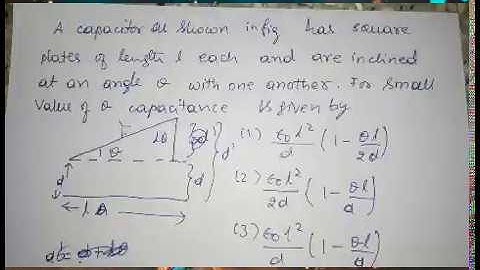 A capacitor as shown in fig has square
plates of length l each and are inclined
at an angle θ with one another. For small
value of θ capacitance is given by
(1) ε₀l²/d (1 - θl/2d)
(2) ε₀l²/2d (1 - θl/d)
(3) ε₀l²/d (1 - θl/d)
θ
lθ
d'
d
d
← l →